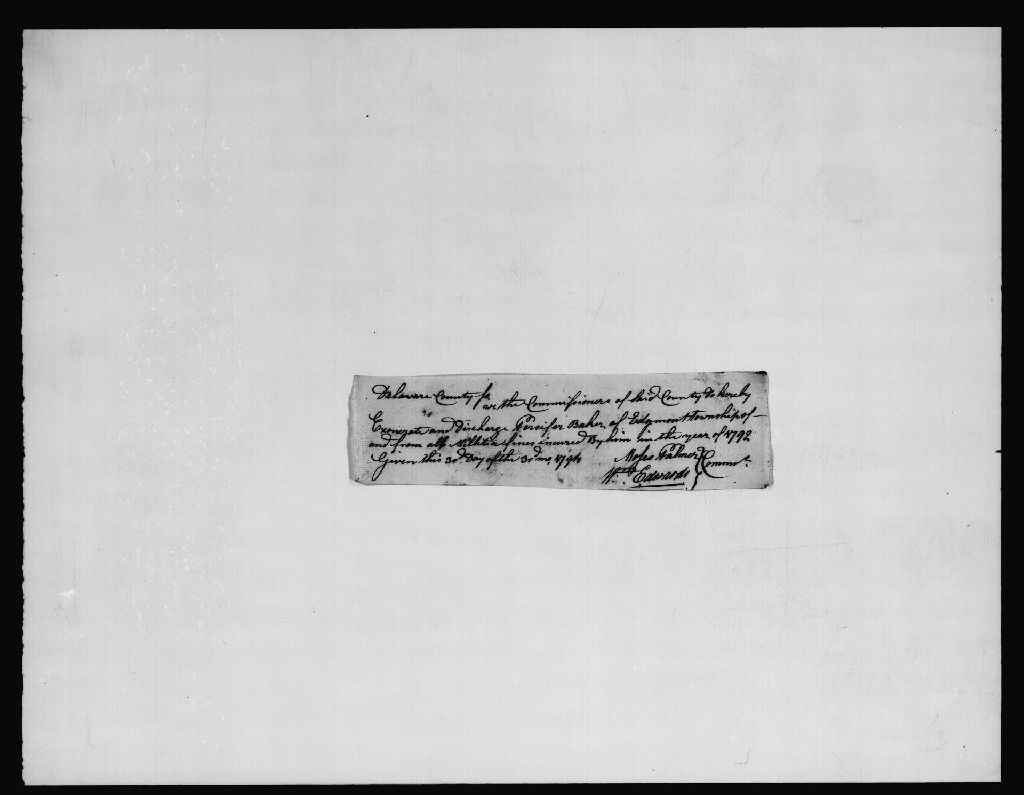 Delaware County ss
we the Commissioners of Said County do hereby
Exonerate and Discharge Persifer Baker of Edgmont township of —
and from all Militia fines incured By him in the year of 1792
Given this 3rd Day of the 3rd mo 1794
Moses Palmer } Commrs.
Wm. Edwards